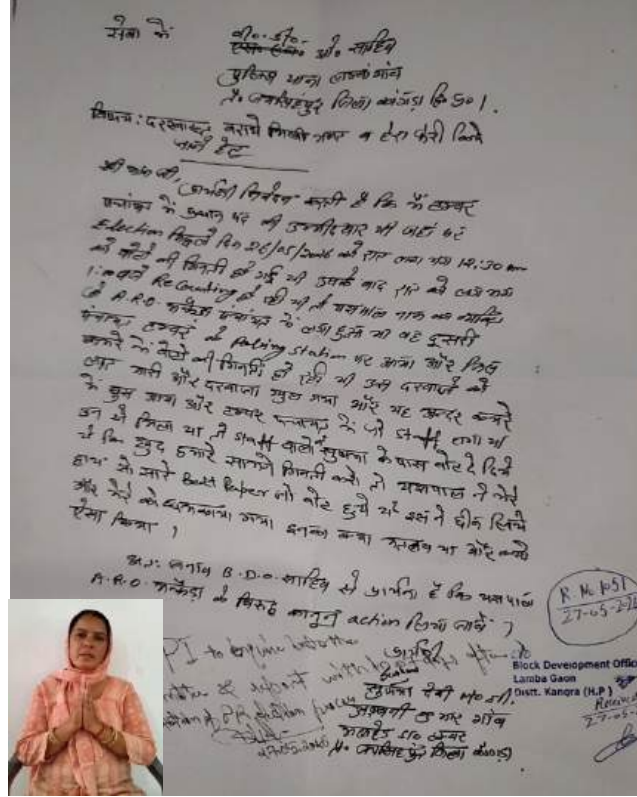 सेवा में
बी० डी०
ओ० साहिब
पुलिस थाना लम्बागांव
त० जयसिंहपुर जिला कांगड़ा हि० प्र० ।
विषय : दरखास्त बराये गिनती व हेरा फेरी किये
जाने हेतु
श्री मान जी,
प्रार्थी निवेदन करती है कि मैं लम्बर
पंचायत में प्रधान पद की उम्मीदवार थी जहां पर
Election दिन 26/05/2026 को रात लगभग 12:30 am
को वोटों की गिनती हो गई थी उसके बाद रात को लगभग
1:00 बजे Recounting हो रही थी तो यशपाल नाम का व्यक्ति
जो A.R.O. पंचायत में लगा हुआ था वह दूसरी
पंचायत लम्बर के Polling Station पर आया और जिस
कमरे में वोटों की गिनती हो रही थी उस दरवाजे को
लात मारी और दरवाजा खुल गया और यह अन्दर कमरे
में घुस आया और लम्बर पंचायत में जो Staff लगा था
उन से मिला था तो Staff वालों ने सुषमा के पास वोट दे दिये
थे कि खुद हमारे सामने गिनती करो तो यशपाल ने मेरे
हाथ से सारे Ballot Paper जो वोट हुये थे उस ने छीन लिये
और मेरे को धमकाया गया इनका क्या मतलब था और क्यों
ऐसा किया ।
अतः जनाब B.D.O. साहिब से प्रार्थना है कि यशपाल
A.R.O. के विरुद्ध कानून action लिया जावे ।
R No 1051
27-05-2026
PI to enquire into the
& report within
प्रार्थी
सुषमा देवी w/o श्री
अश्वनी कुमार गांव
डा० लम्बर
त० जयसिंहपुर जिला कांगड़ा
27.05.2026
Block Development Office
Lamba Gaon
Distt. Kangra (H.P.)
Received
27-05-